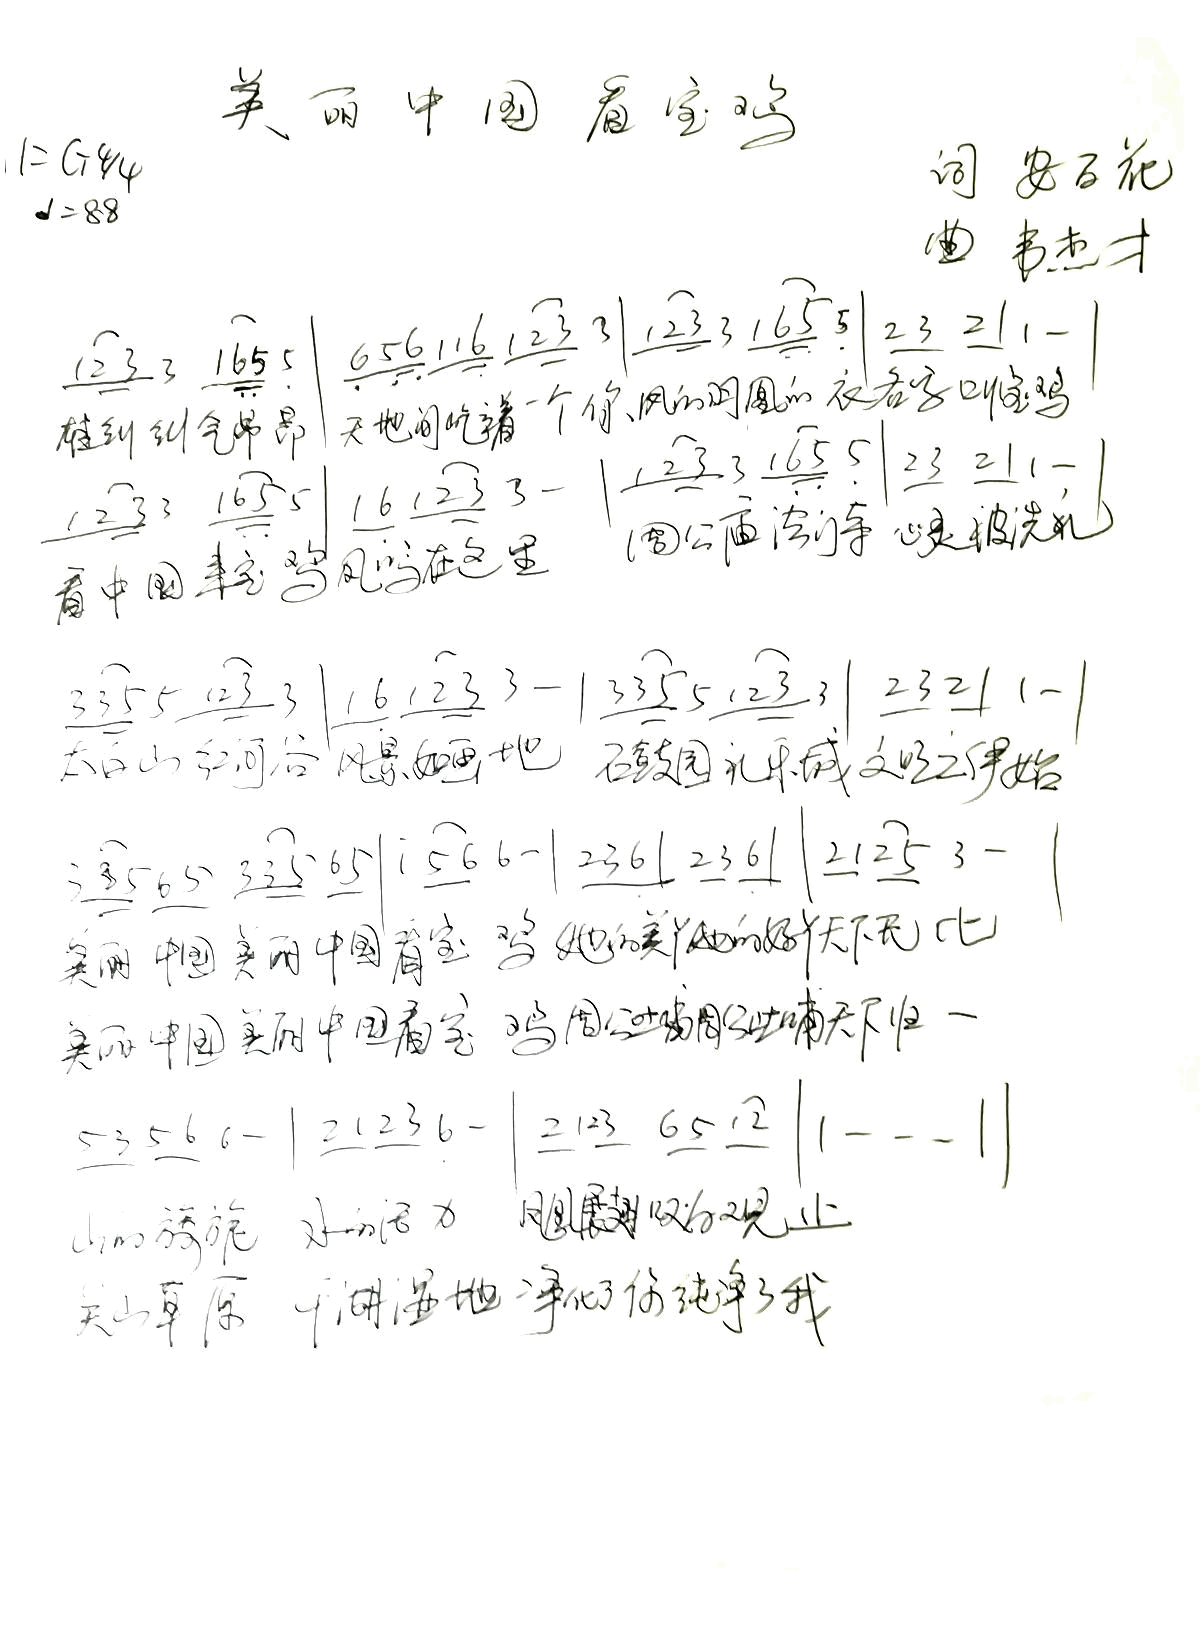 美丽中国看宝鸡
1=G 4/4
♩=88
词 安百花
曲 韦杰才
1233 1655 | 656116 1233 3 | 1233 1655 | 23 21 1 - |
雄纠纠气昂昂 天地间屹着一个你、凤的 凰的衣名字叫宝鸡
1233 1655 | 16 1233 - | 1233 1655 | 23 21 1 - |
看中国来宝鸡凤鸣在这里 周公庙法门寺 心灵被洗礼
3355 1233 | 16 123 3 - | 3355 1233 | 2321 1 - |
太白山红河谷风景如画地 石鼓园礼乐城文明之伊始
i3565 33565 | i 56 6 - | 2361 2361 | 2125 3 - |
美丽中国美丽中国看宝鸡她的美丫她的好丫天下无比
美丽中国美丽中国看宝鸡周公吐哺周公吐哺天下归一
5356 6 - | 2123 6 - | 2123 65 12 | 1 - - - ||
山的旖旎 水的活力 凤凰展翅 观止
关山草原 千湖湿地 净化了你纯净了我